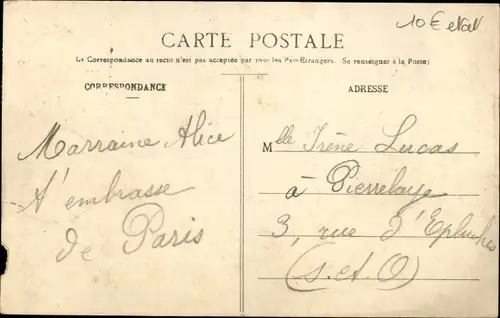 10 € eval
CARTE POSTALE
La Correspondance au recto n'est pas acceptée par tous les Pays Etrangers. Se renseigner à la Poste)
CORRESPONDANCE
ADRESSE
Marraine Alice
t'embrasse
de Paris
Mlle Irène Lucas
à Pierrelaye
3, rue d'Epluches
(S. et. O)